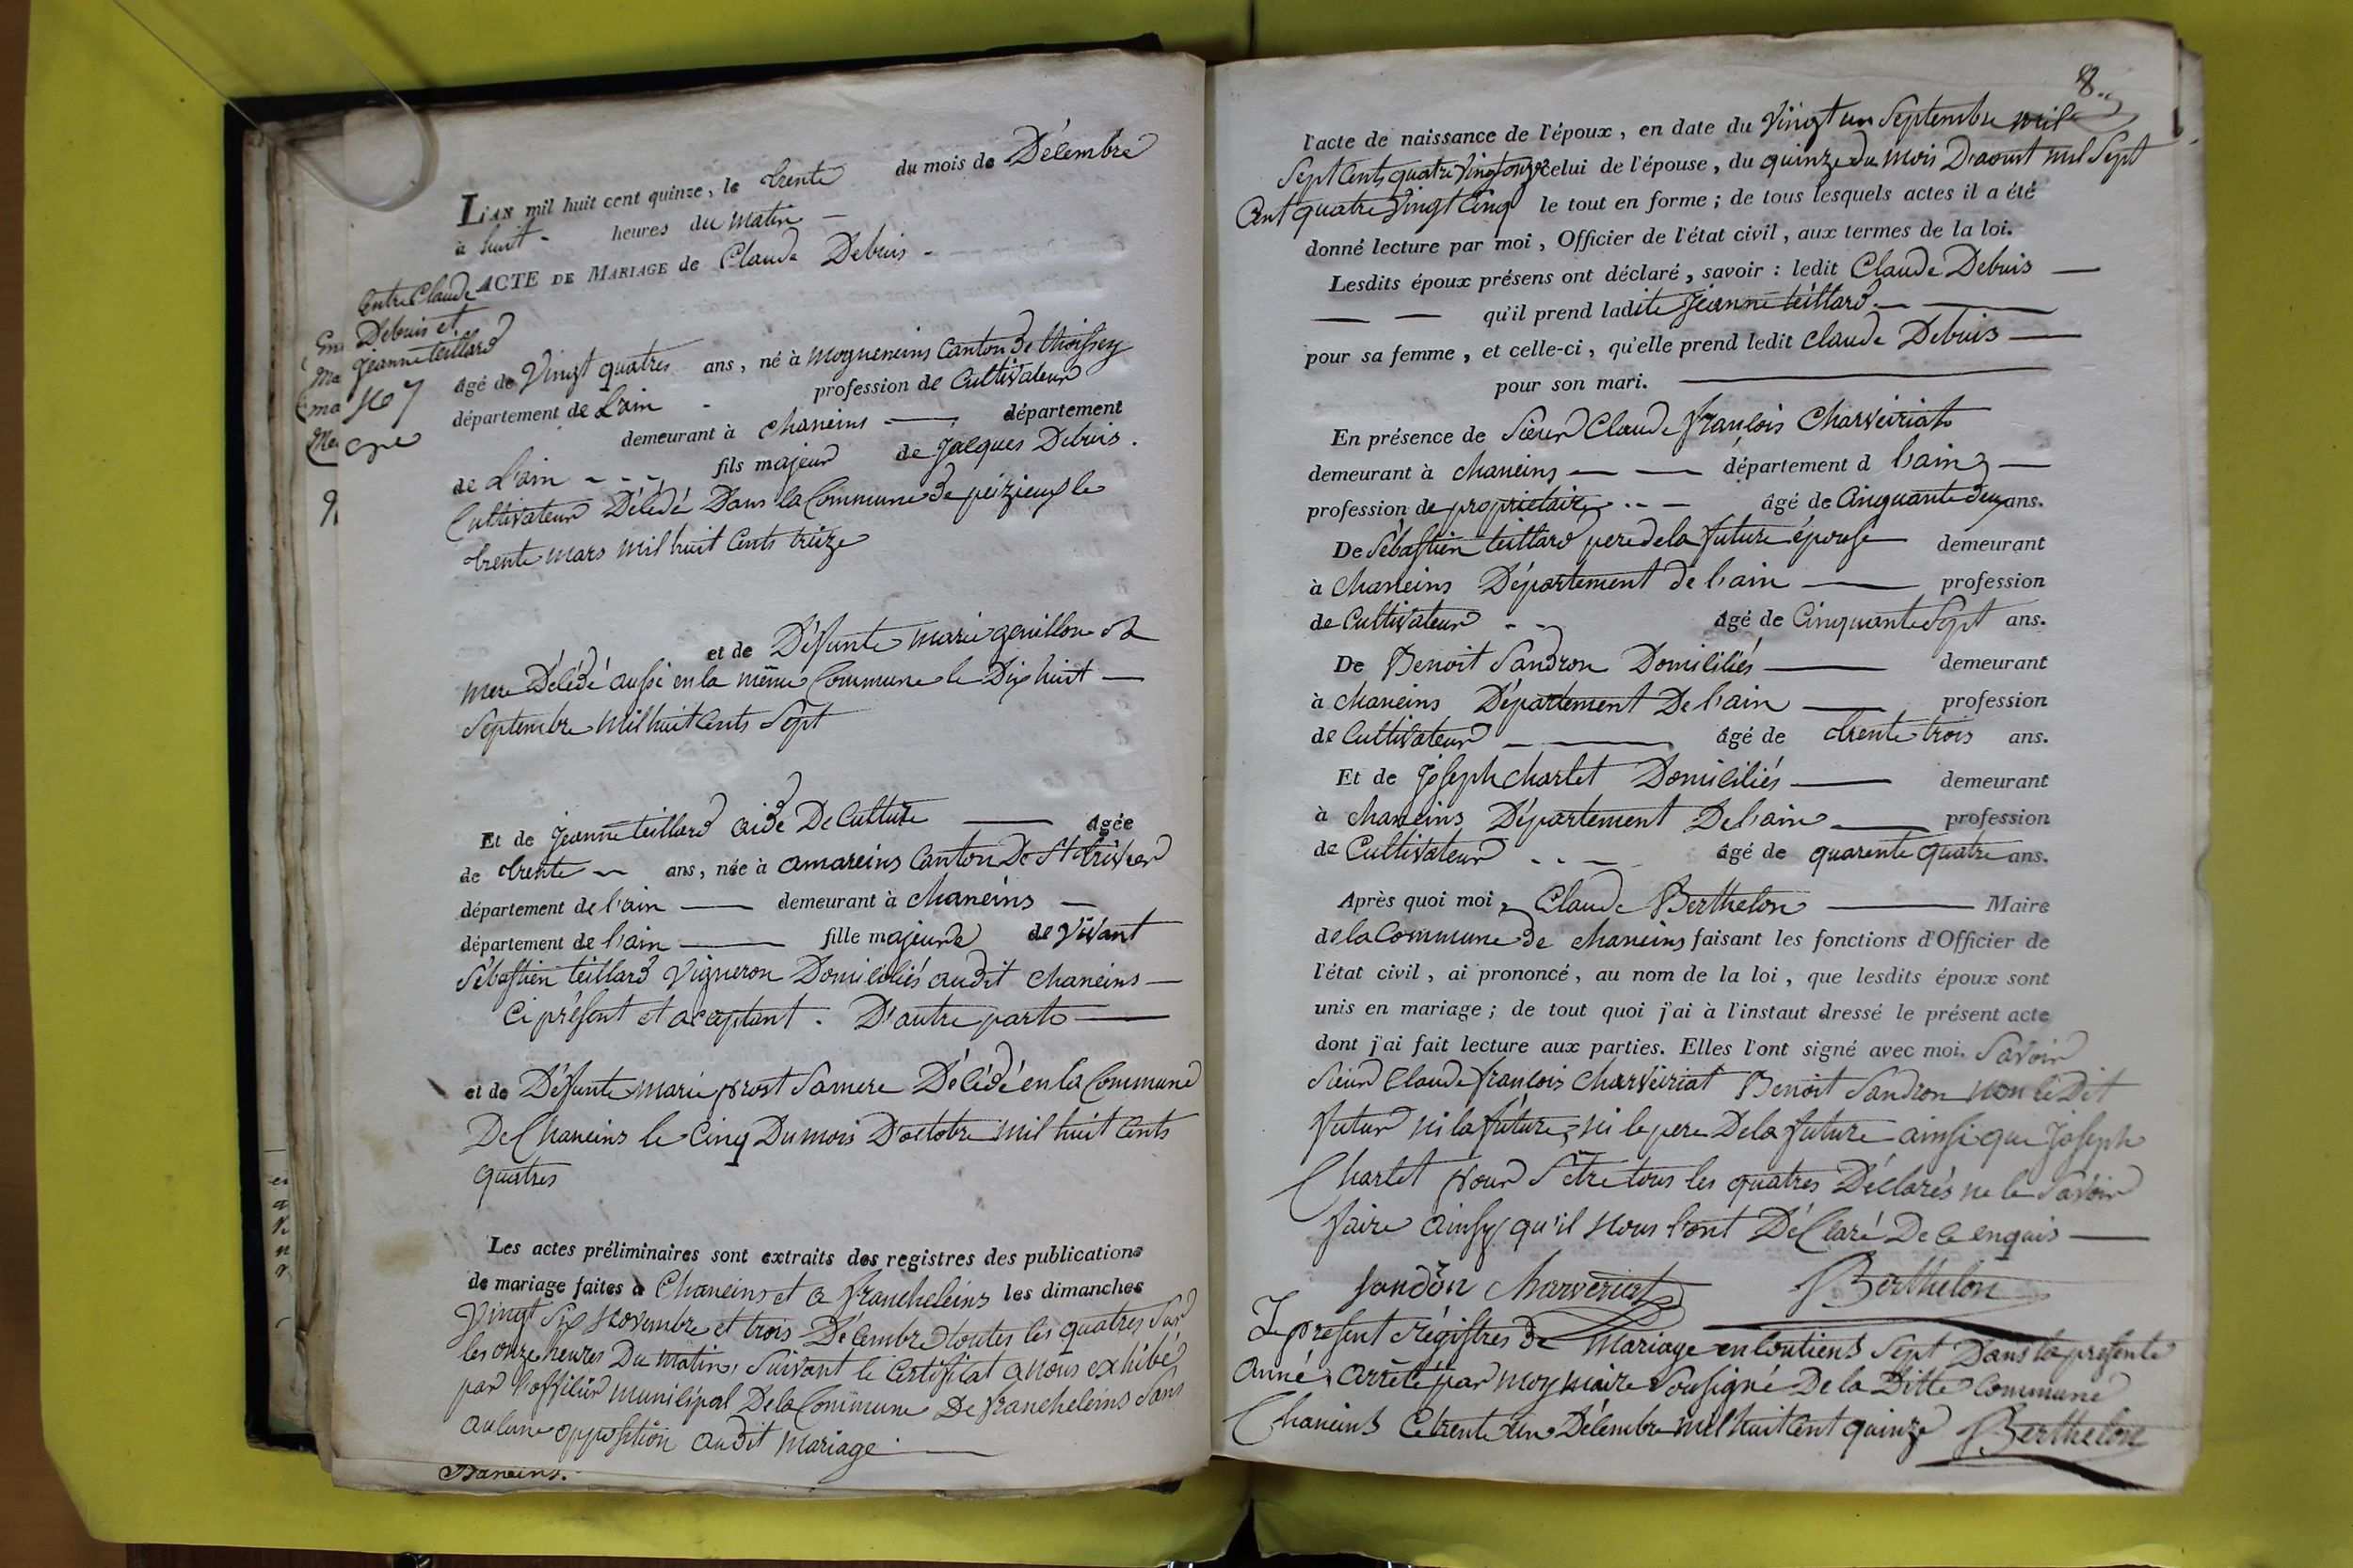 L'AN mil huit cent quinze, le trente du mois de Décembre
à huit - heures du matin -
ACTE DE MARIAGE de Claude Debuis -
Entre Claude
Debuis et
jeanne teillard
No 7
âgé de Vingt quatres ans, né à mogneneins Canton de thoissey
département de L'ain - profession de Cultivateur
demeurant à chaneins - département
de L'ain - - - fils majeur de Jacques Debuis.
Cultivateur Décédé Dans la Commune de peizieux le
trente mars mil huit Cents treize
et de Défunte marie genillon sa
mere Décédé aussi en la même Commune le Dix huit -
Septembre mil huit Cents Sept
Et de jeanne teillard aide De Culture - âgée
de trente - ans, née à amareins Canton De St trivier
département de l'ain - demeurant à chaneins -
département de l'ain - fille majeure de Vivant
Sébastien teillard Vigneron Domiciliés audit chaneins -
Ci présent et aceptant. D'autre part -
et de Défunte marie prost Sa mere Décédé en la Commune
De Chaneins le Cinq Du mois D'octobre mil huit Cents
quatres
Les actes préliminaires sont extraits des registres des publications
de mariage faites à Chaneins et a francheleins les dimanches
Vingt Six Novembre et trois Décembre toutes les quatres Sur
les onze heures Du matin, Suivant le Certificat a nous exhibé
par l'officier municipal De la Commune De francheleins Sans
aucune opposition audit mariage -
Baneins.
8.
l'acte de naissance de l'époux, en date du Vingt un Septembre mil
Sept Cents quatre Vingt onze celui de l'épouse, du quinze du mois D'aoust mil Sept
Cent quatre Vingt Cinq le tout en forme; de tous lesquels actes il a été
donné lecture par moi, Officier de l'état civil, aux termes de la loi.
Lesdits époux présens ont déclaré, savoir: ledit Claude Debuis -
- - qu'il prend ladite Jeanne teillard - -
pour sa femme, et celle-ci, qu'elle prend ledit claude Debuis -
pour son mari. -
En présence de Sieur Claude françois Charveiriat
demeurant à chaneins - - département d l'ain -
profession de proprietaire - - âgé de Cinquante deux ans.
De Sébastien teillard pere de la future épouse demeurant
à chaneins Département de l'ain - profession
de Cultivateur - - âgé de Cinquante Sept ans.
De Benoit Sandron Domiciliés - demeurant
à chaneins Département De l'ain - profession
de Cultivateur - - âgé de trente trois ans.
Et de Joseph charlet Domiciliés - demeurant
à chaneins Département De l'ain - profession
de Cultivateur - - - âgé de quarente quatre ans.
Après quoi moi, Claude Berthelon - Maire
de la Commune de chaneins faisant les fonctions d'Officier de
l'état civil, ai prononcé, au nom de la loi, que lesdits époux sont
unis en mariage; de tout quoi j'ai à l'instaut dressé le présent acte
dont j'ai fait lecture aux parties. Elles l'ont signé avec moi. Savoir
Sieur Claude françois charveiriat Benoit Sandron non le Dit
futur ni la future, ni le pere De la future ainsi que Joseph
Charlet pour S'être tous les quatres Déclarés ne le Savoir
faire ainsy qu'il nous l'ont Déclaré De ce enquis -
Sandon Charveriat Berthelon
Le present régistres de mariage en Contiens Sept Dans la presente
année, arrêté par moy maire Sousigné De la Ditte Commune
Chaneins Ce trente un Décembre mil huit Cent quinze Berthelon